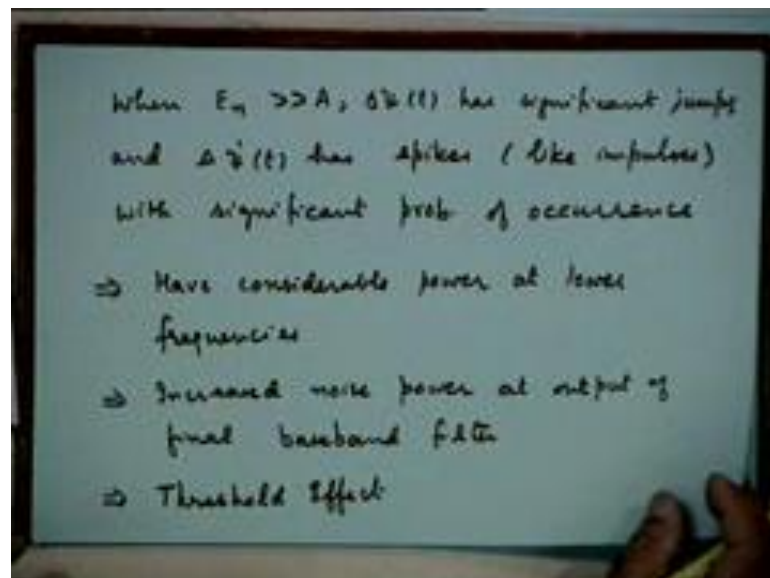 When En >> A, Δψ(t) has significant jumps
and Δψ̇(t) has spikes (like impulses)
with significant prob of occurrence
⇒ Have considerable power at lower
frequencies
⇒ Increased noise power at output of
final baseband filter
⇒ Threshold Effect